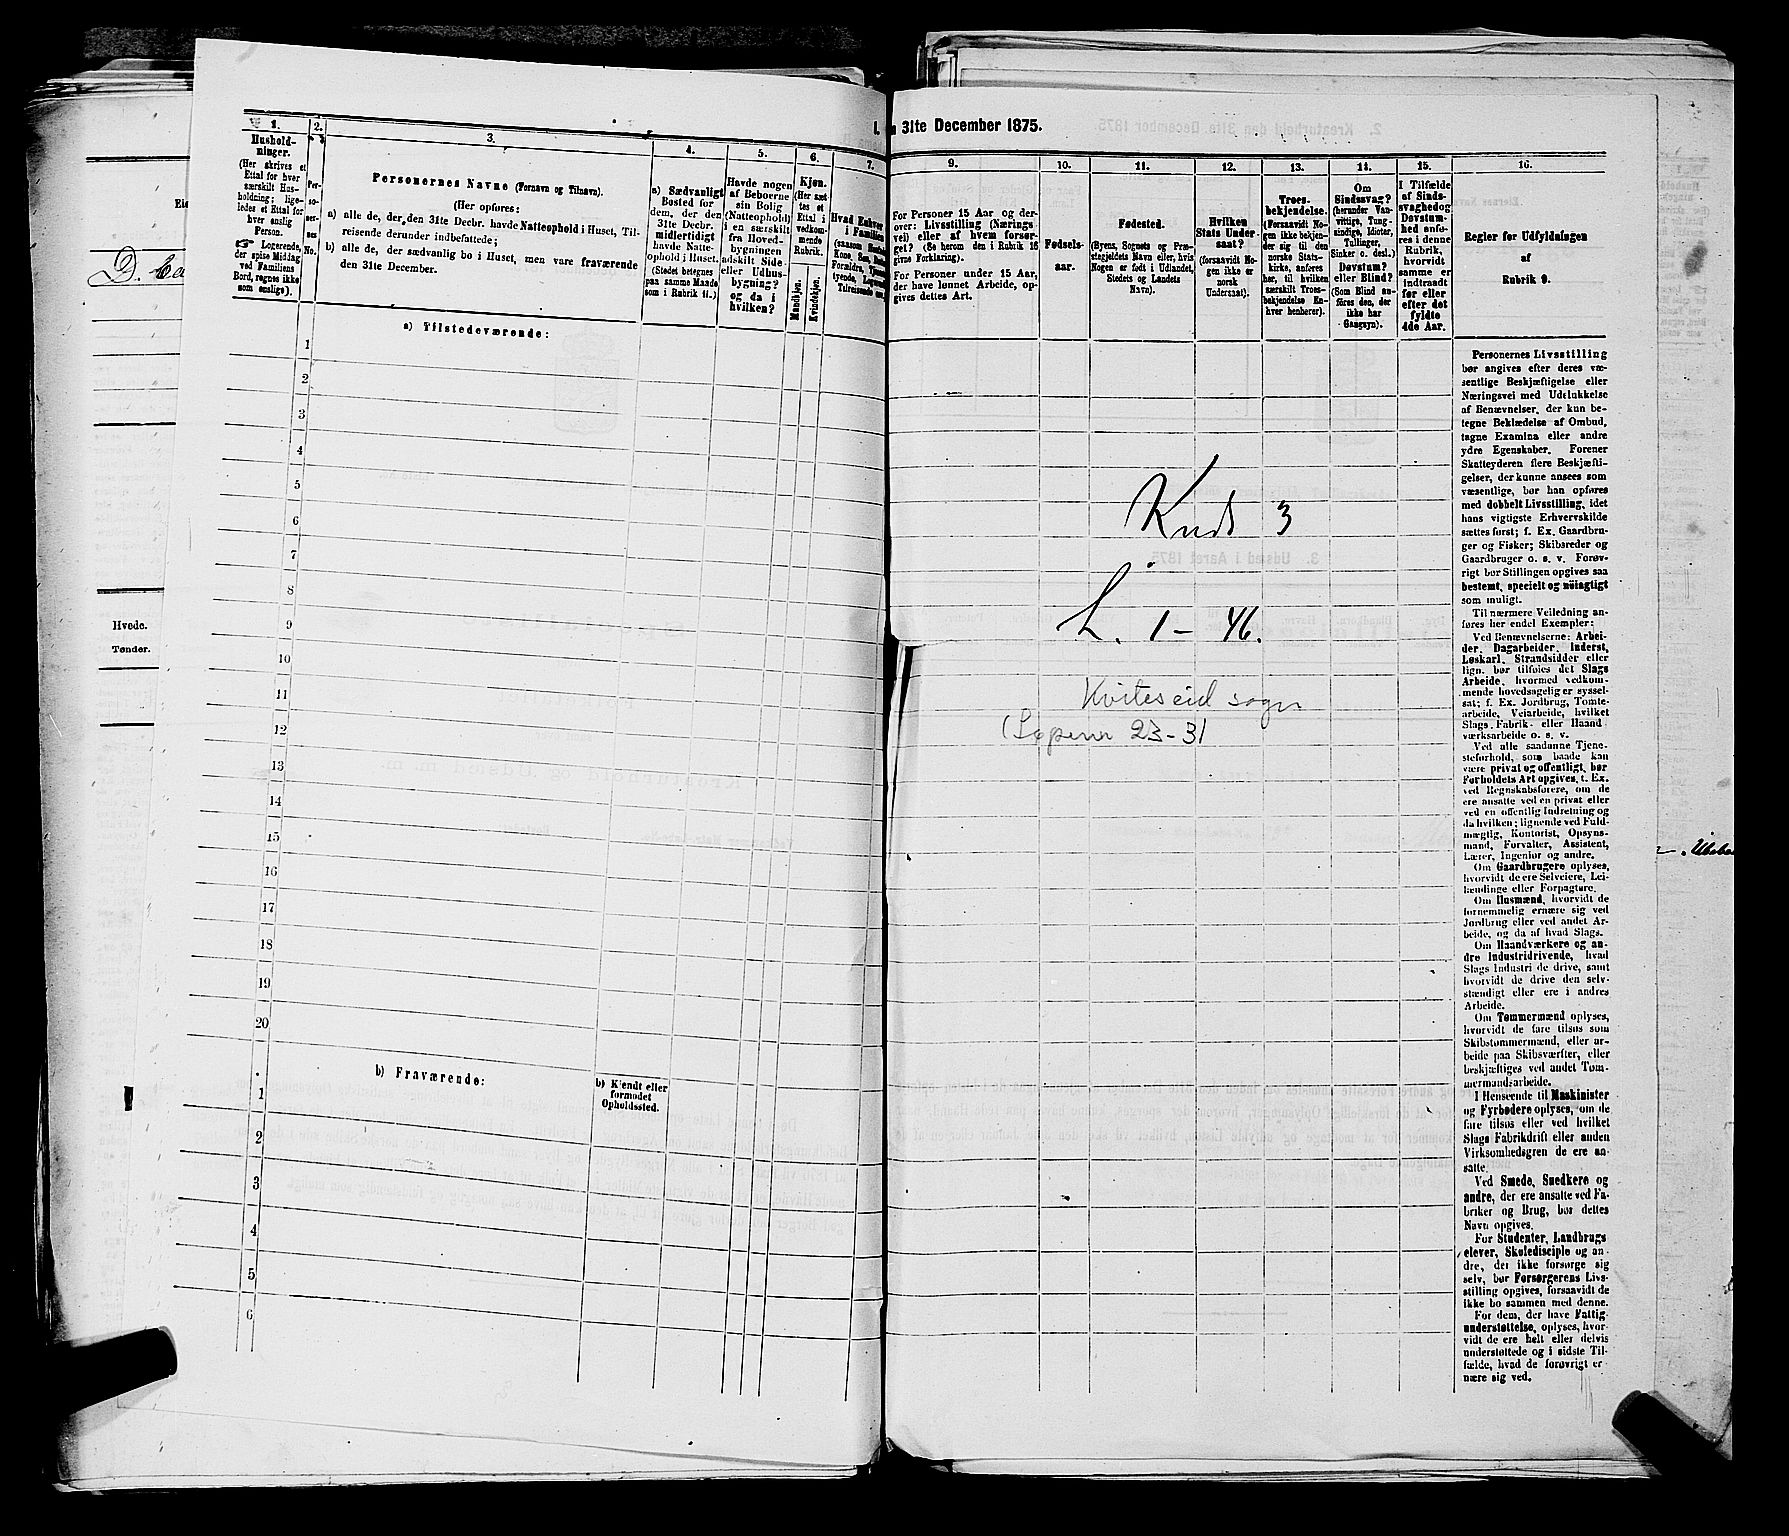 I.
n 31te December 1875.
1.
Hushold-
ninger.
(Her skrives et
Ettal for hver
særskilt Hus-
holdning; lige-
ledes et Ettal for
hver enslig
Person.
☞ Logerende,
der spise Middag
ved Familiens
Bord, regnes ikke
som enslige).
2.
Per-
so-
ner-
nes
No.
3.
Personernes Navne (Fornavn og Tilnavn).
(Her opføres:
a) alle de, der den 31te Decbr. havde Natteophold i Huset, Til-
reisende derunder indbefattede;
b) alle de, der sædvanlig bo i Huset, men vare fraværende
den 31te December.
4.
a) Sædvanligt
Bosted for
dem, der den
31te Decbr.
midlertidigt
havde Natte-
ophold i Huset.
(Stedet betegnes
paa samme Maade
som i Rubrik 11.)
5.
Havde nogen
af Beboerne
sin Bolig
(Natteophold)
i en særskilt
fra Hoved-
bygningen
adskilt Side-
eller Udhus-
bygning?
og da i
hvilken?
6.
Kjøn.
(Her sæt-
tes et
Ettal i
vedkom-
mende
Rubrik.
Mandkjøn.
Kvindekjøn.
7.
Hvad Enhver
i Familien
(saasom
Kone, Søn,
Forældre,
tyende,
Tilreisende
9.
For Personer 15 Aar og der-
over: Livsstilling (Nærings
vei) eller af hvem forsør-
get? (Se herom den i Rubrik 16
givne Forklaring).
For Personer under 15 Aar,
der have lønnet Arbeide, op-
gives dettes Art.
10.
Fødsels-
aar.
11.
Fødested.
(Byens, Sognets og Præ-
stegjeldets Navn eller, hvis
Nogen er født i Udlandet,
Stedets og Landets
Navn).
12.
Hvilken
Stats Under-
saat?
(forsaavidt No-
gen ikke er
norsk
Undersaat).
13.
Troes-
bekjendelse.
(Forsaavidt No-
gen ikke bekjen-
der sig til den
norske Stats-
kirke, anføres
her, til hvilken
særskilt Troes-
bekjendelse En-
hver henhører).
14.
Om
Sindssvag?
(herunder Van-
vittige, Tung-
sindige, Idioter,
Tullinger,
Sinker o. desl.)
Døvstum?
eller Blind?
(Som Blind an-
føres den, der
ikke har
Gangsyn).
15.
I Tilfælde
af Sinds-
svaghedog
Døvstum-
hed anfø-
res i denne
Rubrik,
hvorvidt
samme er
indtraadt
før eller
efter det
fyldte
4de Aar.
16.
Regler for Udfyldningen
af
Rubrik 9.
a) Tilstedeværende:
1
2
3
4
5
6
7
8
9
10
11
12
13
14
15
16
17
18
19
20
b) Fraværende:
b) Kjendt eller
formodet
Opholdssted.
1
2
3
4
5
6
Hvede.
Tønder.
Kvds 3
L. 1 – 46.
Kviteseid sogn
23-31
Personernes Livsstilling
bør angives efter deres væ-
sentlige Beskjæftigelse eller
Næringsvei med Udelukkelse
af Benævnelser, der kun be-
tegne Beklædelse af Ombud,
tagne Examina eller andre
ydre Egenskaber. Forener
Skatteyderen flere Beskjæfti-
gelser, der kunne ansees som
væsentlige, bør han opføres
med dobbelt Livsstilling, idet
hans vigtigste Erhvervskilde
sættes først; f. Ex. Gaardbru-
ger og Fisker; Skibsreder og
Gaardbruger o. s. v. Forøv-
rigt bør Stillingen opgives saa
bestemt, specielt og nöiagtigt
som muligt.
Til nærmere Veiledning an-
føres her endel Exempler:
Ved Benævnelserne: Arbei-
der, Dagarbeider, Inderst,
Løskarl, Strandsidder eller
lign. bør tilføies det Slags
Arbeide, hvormed vedkom-
mende hovedsagelig er syssel-
sat; f. Ex. Jordbrug, Tomte-
arbeide, Veiarbeide, hvilket
Slags Fabrik- eller Haand-
værksarbeide o. s. v.
Ved alle saadanne Tjene-
steforhold, som baade kan
være privat og offentligt, bør
Forholdets Art opgives, t. Ex.
ved Regnskabsførere, om de
ere ansatte ved en privat eller
ved en offentlig Indretning og
da hvilken; lignende ved Fuld-
mægtig, Kontorist, Opsyns-
mand, Forvalter, Assistent,
Lærer, Ingeniør og andre.
Om Gaardbrugere oplyses,
hvorvidt de ere Selveiere, Lei-
lændinge eller Forpagtere.
Om Husmænd, hvorvidt de
fornemmelig ernære sig ved
Jordbrug eller ved andet Ar-
beide, og da af hvad Slags.
Om Haandværkere og an-
dre Industridrivende, hvad
Slags Industri de drive, samt
hvorvidt de drive den selv-
stændigt eller ere i andres
Arbeide.
Om Tømmermænd oplyses,
hvorvidt de fare tilsøs som
Skibstømmermænd, eller ar-
beide paa Skibsværfter, eller
beskjæftiges ved andet Tøm-
mermandsarbeide.
I Henseende til Maskinister
og Fyrbødere oplyses, om de
fare tilsøs eller ved hvilket
Slags Fabrikdrift eller anden
Virksomhedsgren de ere an-
satte.
Ved Smede, Snedkere og
andre, der ere ansatte ved Fa-
briker og Brug, bør dettes
Navn opgives.
For Studenter, Landbrugs
elever, Skoledisciple og an-
dre, der ikke forsørge sig
selv, bør Forsørgerens Livs-
stilling opgives, forsaavidt de
ikke bo sammen med denne.
For dem, der have Fattig-
understøttelse, oplyses, hvor-
vidt de ere helt eller delvis
understøttede og i sidste Til-
fælde, hvad de forøvrigt er-
nære sig ved.